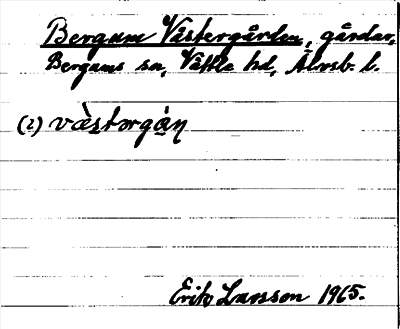 Bergum Västergården, gårdar,
Bergums sn, Vättle hd, Älvsb. l.
(i) vàstərgá̱ṇ
Erik Larsson 1965.